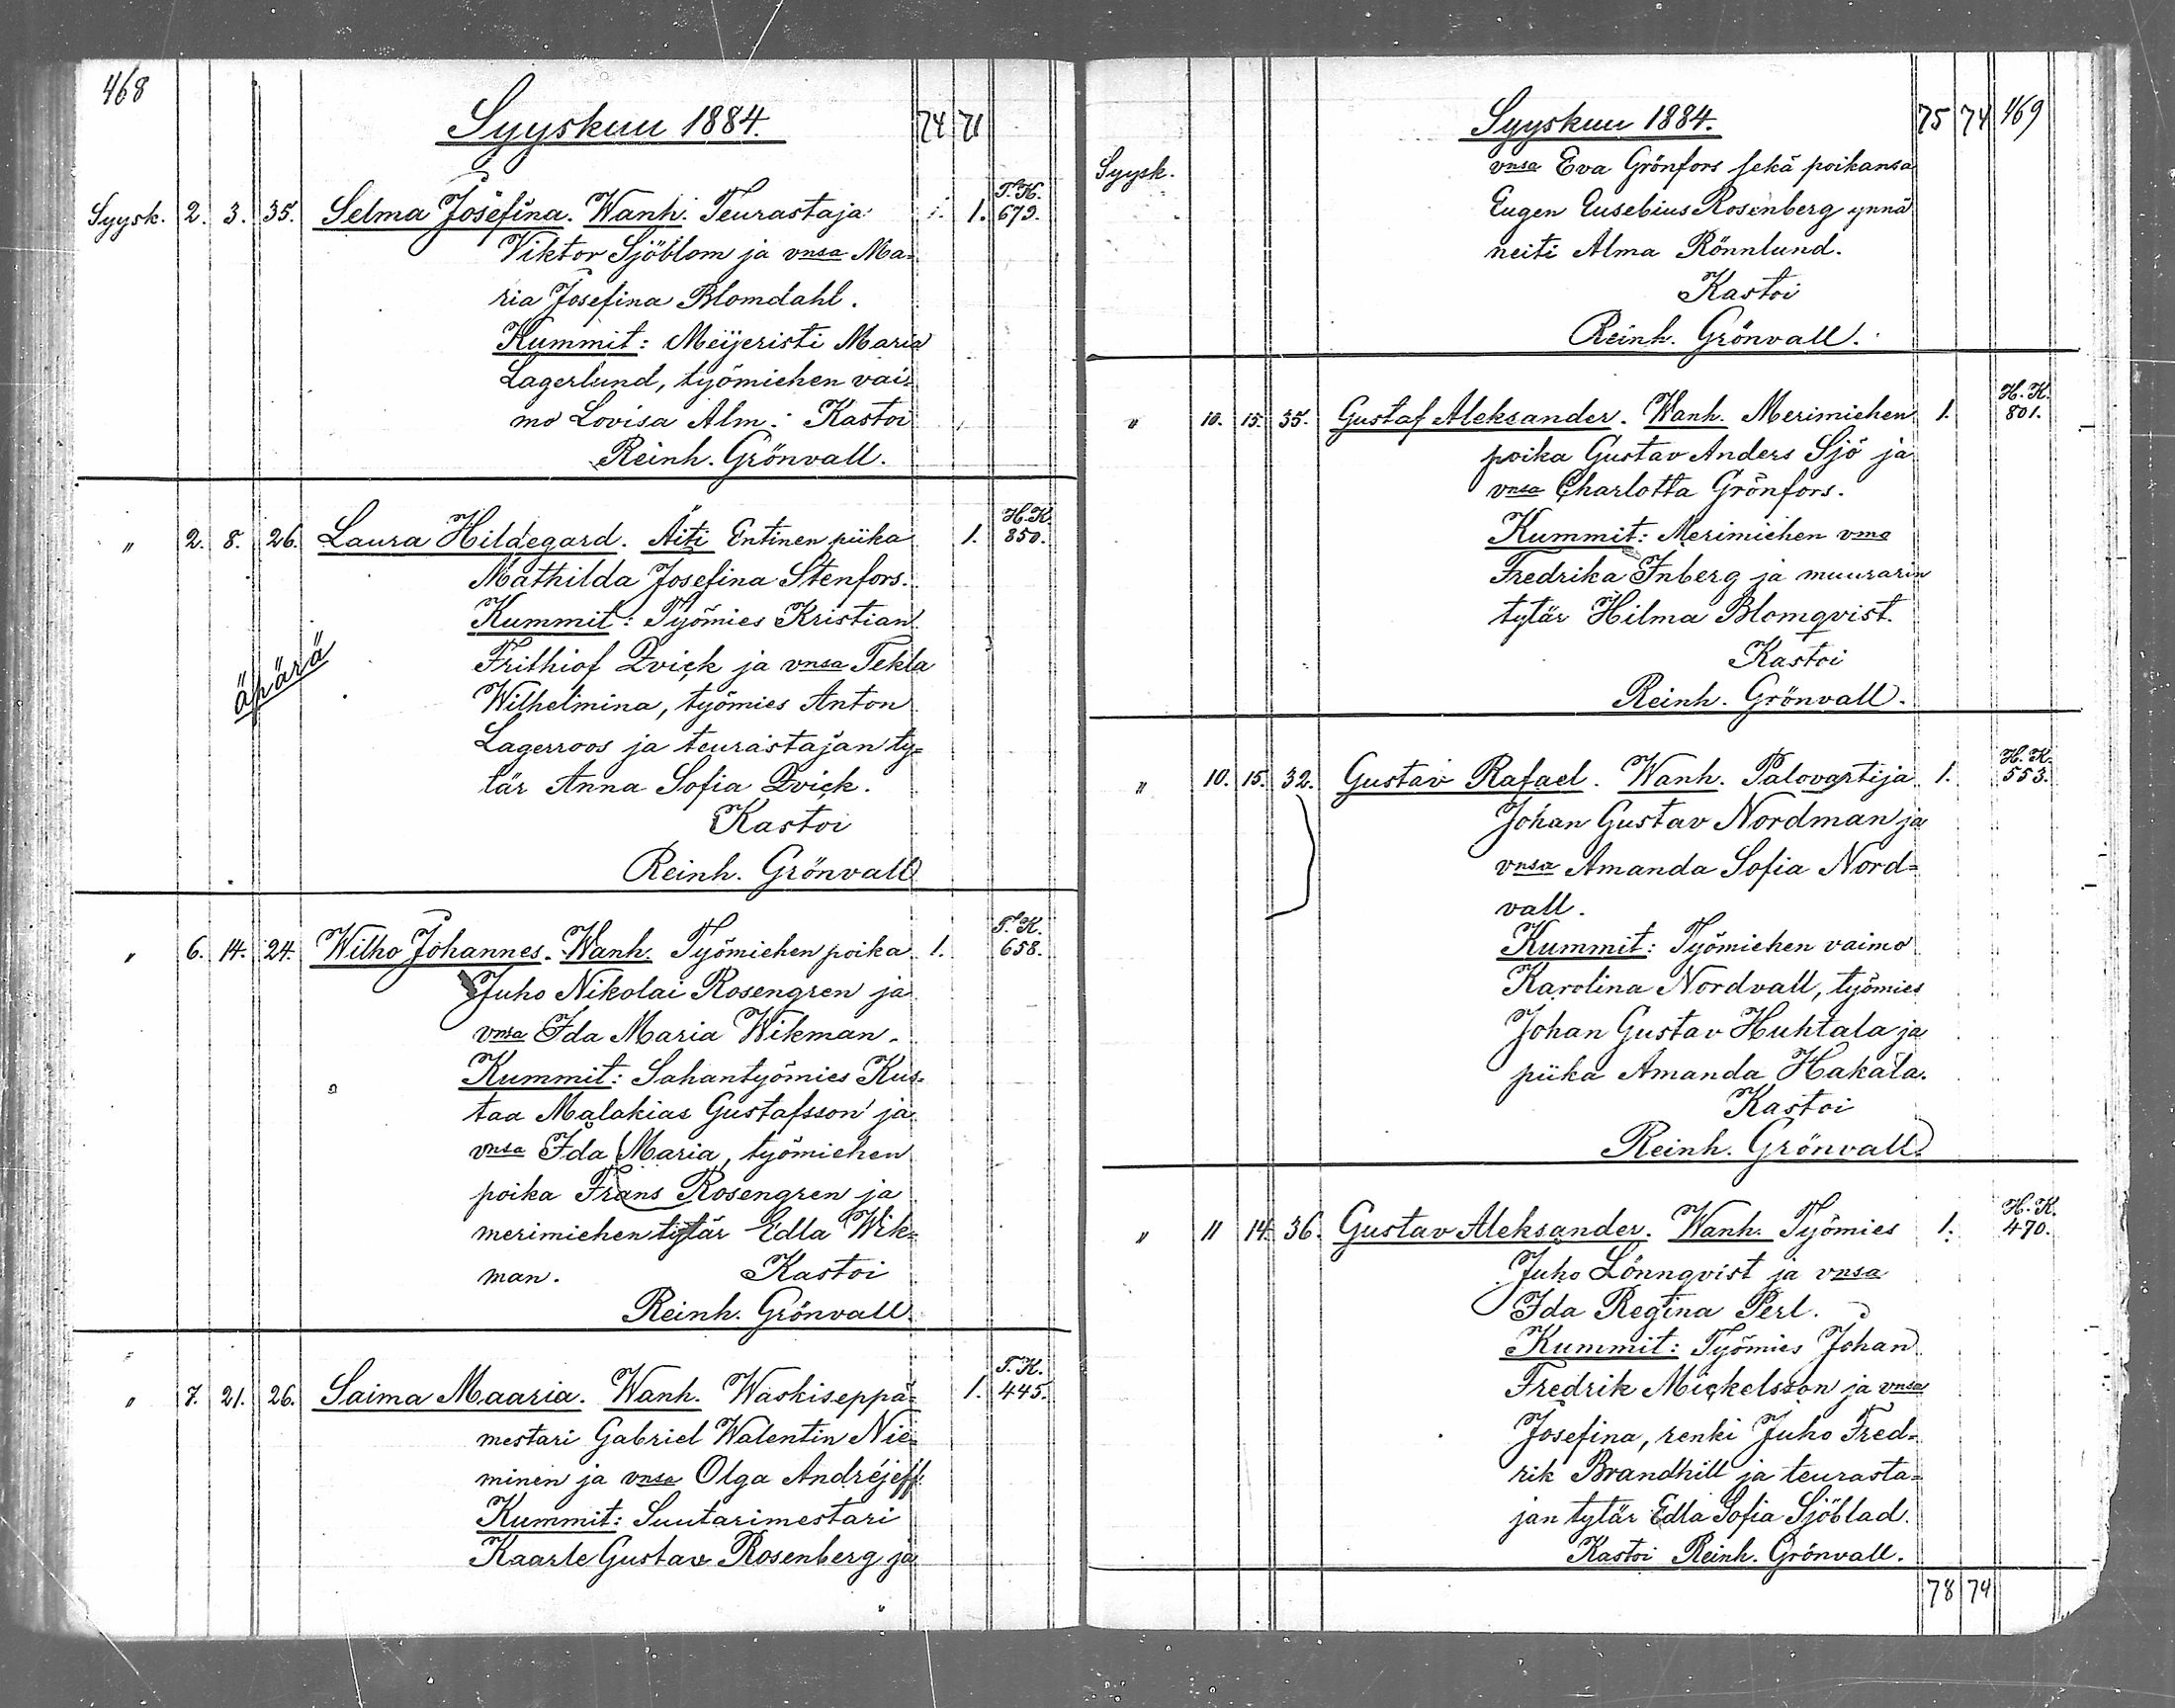 468
Syyskuu 1884. 74 71
Syysk. 2. 3. 35. Selma Josefina. Wanh. Teurastaja 1. T. K. 679.
Viktor Sjöblom ja vnsa Ma=
ria Josefina Blomdahl.
Kummit: Meijeristi Maria
Lagerlund, työmiehen vai=
mo Lovisa Alm. Kastoi
Reinh. Grönvall.
" 2. 8. 26. Laura Hildegard. Äiti Entinen piika 1. H. K. 850.
Mathilda Josefina Stenfors.
Kummit: Työmies Kristian
Frithiof Qvick ja vnsa Tekla
äpärä
Wilhelmina, työmies Anton
Lagerroos ja teurastajan ty=
tär Anna Sofia Qvick.
Kastoi
Reinh. Grönvall
" 6. 14. 24. Wilho Johannes. Wanh. Työmiehen poika 1. T. K. 658.
Juho Nikolai Rosengren ja
vnsa Ida Maria Wikman.
Kummit: Sahantyömies Kus=
taa Malakias Gustafsson ja
vnsa Ida Maria, työmiehen
poika Frans Rosengren ja
merimiehen tytär Edla Wik=
man. Kastoi
Reinh. Grönvall.
" 7. 21. 26. Saima Maaria. Wanh. Waskiseppä= 1. T. K. 445.
mestari Gabriel Walentin Nie=
minen ja vnsa Olga Andrejeff.
Kummit: Suutarimestari
Kaarle Gustav Rosenberg ja
Syyskuu 1884. 75 74 469
Syysk. vnsa Eva Grönfors sekä poikansa
Eugen Eusebius Rosenberg ynnä
neiti Alma Rönnlund.
Kastoi
Reinh. Grönvall.
" 10. 15. 35. Gustaf Aleksander. Wanh. Merimiehen 1. H. K. 801.
poika Gustav Anders Sjö ja
vnsa Charlotta Grönfors.
Kummit: Merimiehen vmo
Fredrika Inberg ja muurarin
tytär Hilma Blomqvist.
Kastoi
Reinh. Grönvall.
" 10. 15. 32. Gustav Rafael. Wanh. Palovartija 1. H. K. 553.
Johan Gustav Nordman ja
vnsa Amanda Sofia Nord=
vall.
Kummit: Työmiehen vaimo
Karolina Nordvall, työmies
Johan Gustav Huhtala ja
piika Amanda Hakala.
Kastoi
Reinh. Grönvall.
" 11 14. 36. Gustav Aleksander. Wanh. Työmies 1. H. K. 470.
Juho Lönnqvist ja vnsa
Ida Regina Perl.
Kummit: Työmies Johan
Fredrik Mickelsson ja vnsa
Josefina, renki Juho Fred=
rik Brandhill ja teurasta=
jan tytär Edla Sofia Sjöblad.
Kastoi Reinh. Grönvall.
78 74